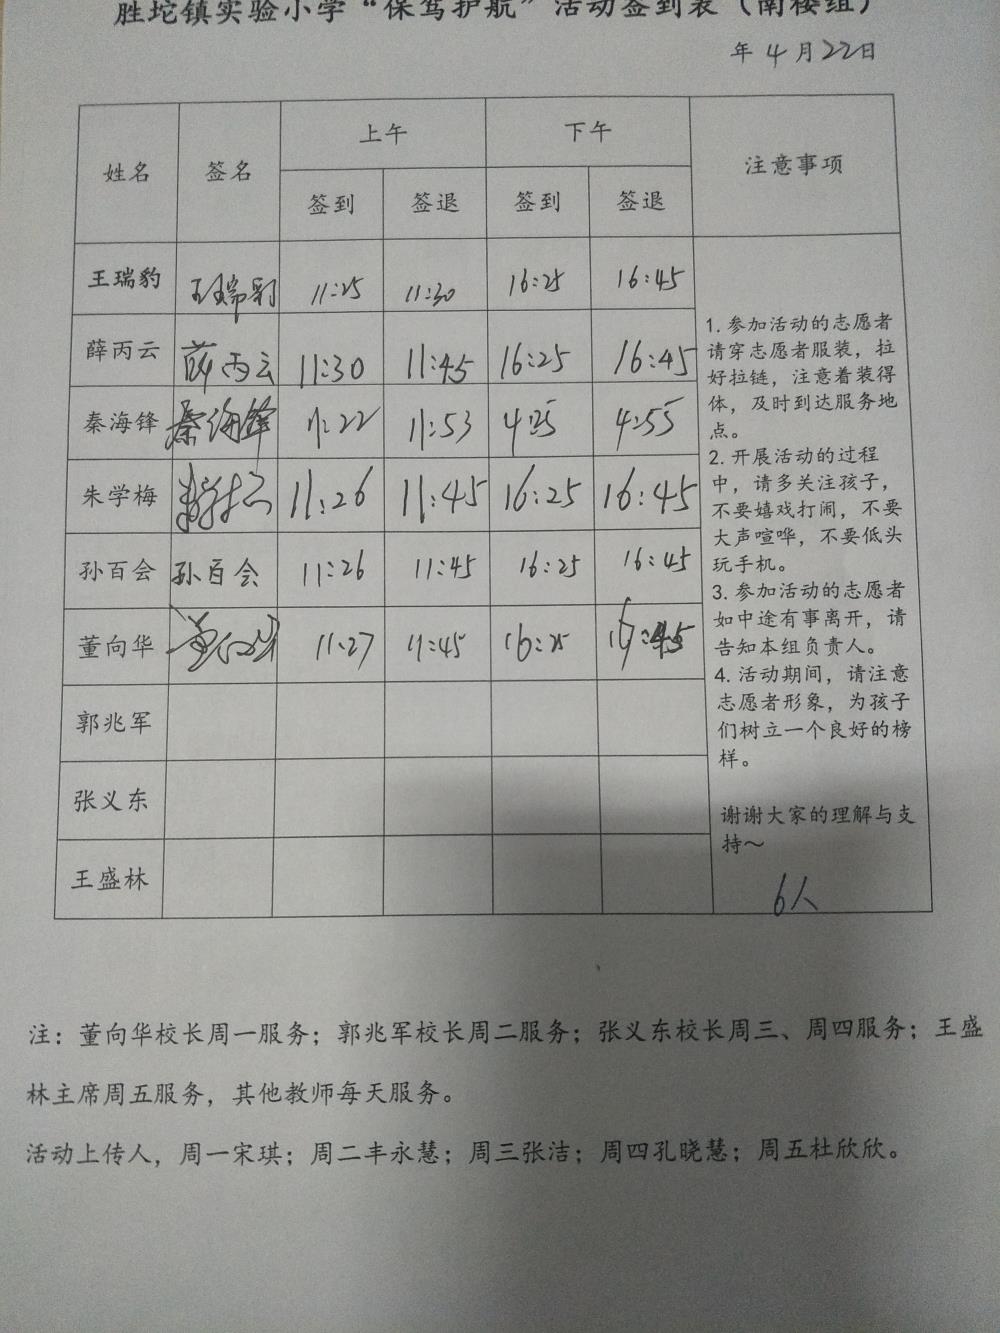 胜坨镇实验小学“保驾护航”活动签到表（南楼组）
年 4 月 22 日
姓名 签名 上午 下午 注意事项
签到 签退 签到 签退
王瑞豹 王瑞豹 11:25 11:30 16:25 16:45
薛丙云 薛丙云 11:30 11:45 16:25 16:45
秦海锋 秦海锋 11:22 11:53 4:25 4:55
朱学梅 11:26 11:45 16:25 16:45
孙百会 孙百会 11:26 11:45 16:25 16:45
董向华 董向华 11:27 11:45 16:25 16:45
郭兆军
张义东
王盛林
1. 参加活动的志愿者
请穿志愿者服装，拉
好拉链，注意着装得
体，及时到达服务地
点。
2. 开展活动的过程
中，请多关注孩子，
不要嬉戏打闹，不要
大声喧哗，不要低头
玩手机。
3. 参加活动的志愿者
如中途有事离开，请
告知本组负责人。
4. 活动期间，请注意
志愿者形象，为孩子
们树立一个良好的榜
样。
谢谢大家的理解与支
持～
6人
注：董向华校长周一服务；郭兆军校长周二服务；张义东校长周三、周四服务；王盛
林主席周五服务，其他教师每天服务。
活动上传人，周一宋琪；周二丰永慧；周三张洁；周四孔晓慧；周五杜欣欣。